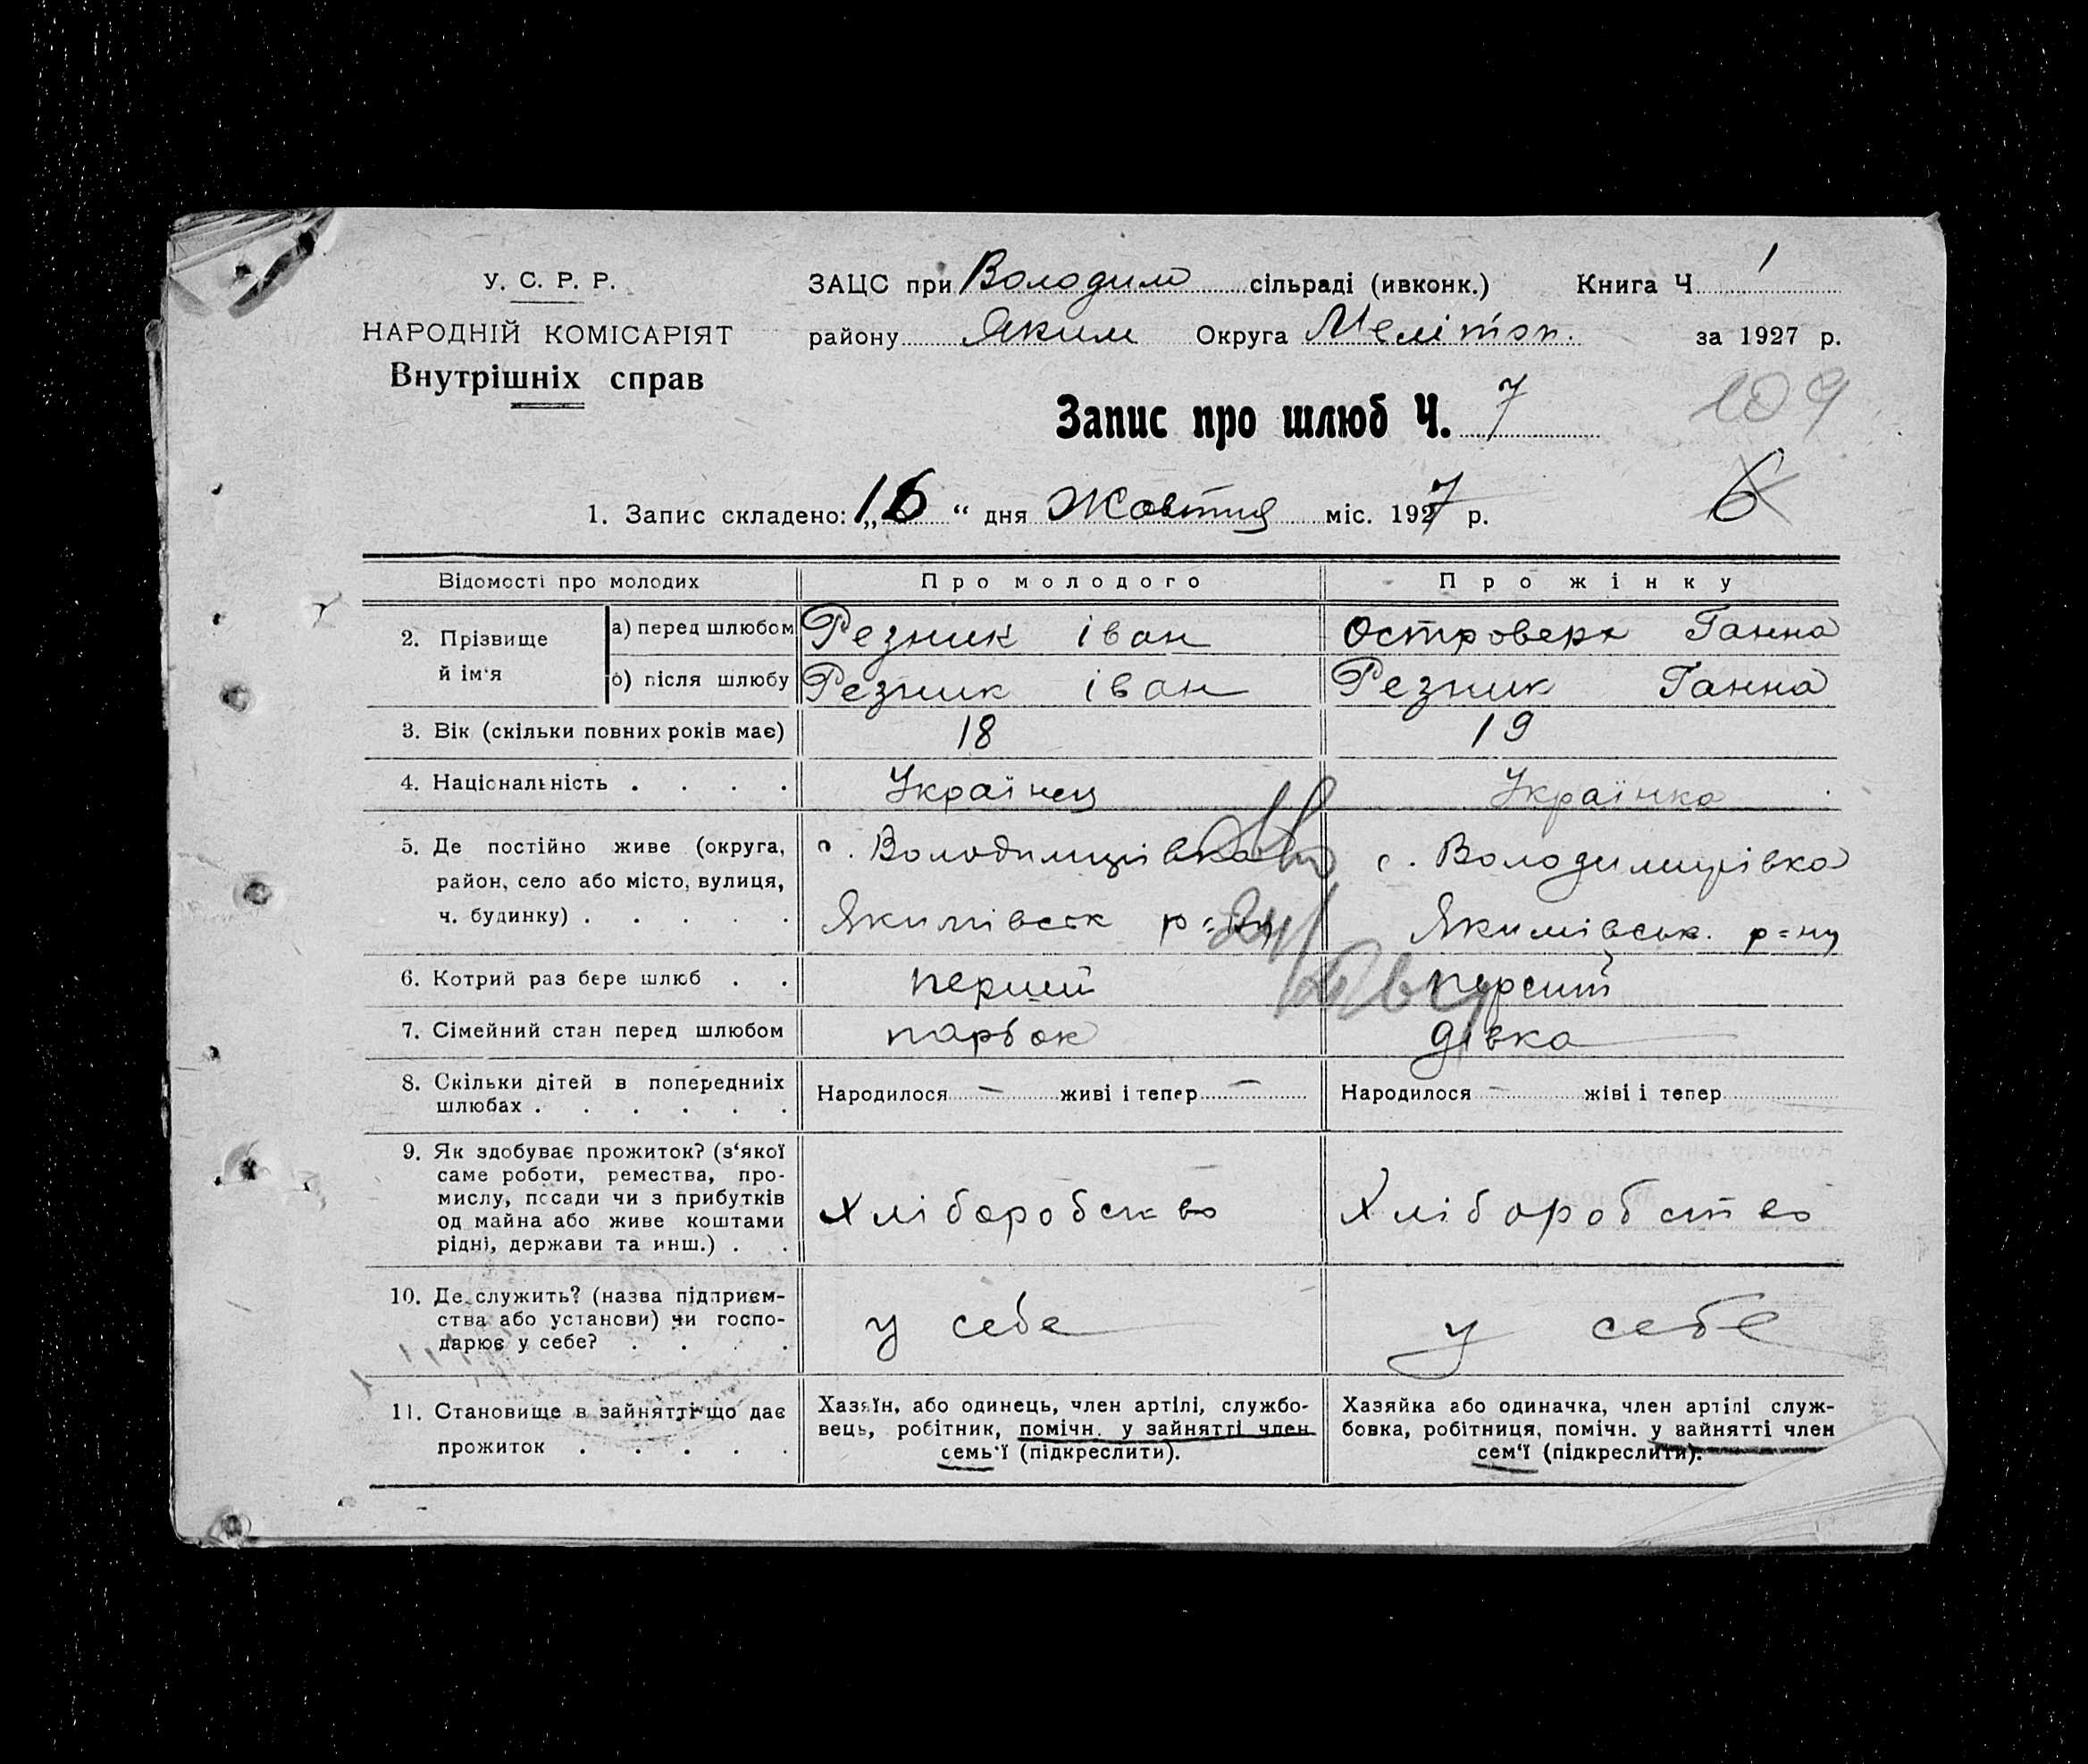 У. С. Р. Р.
НАРОДНІЙ КОМІСАРІЯТ
Внутрішніх справ
ЗАЦС при Володим сільраді (ивконк.) Книга Ч 1
району Яким Округа Меліт́оп. за 1927 р.
Запис про шлюб Ч. 7
109
1. Запис складено: „16“ дня Жовтня міс. 1927 р.
6
Відомості про молодих Про молодого Про жінку
2. Прізвище й ім'я
а) перед шлюбом Резник іван Островерх Ганна
б) після шлюбу Резник іван Резник Ганна
3. Вік (скільки повних років має) 18 19
4. Національність . . . . Українец Українка
5. Де постійно живе (округа, с. Володимирівка с. Володимирівка
район, село або місто, вулиця,
ч. будинку) . . . . . Якимівськ р=ну Якимівськ. р=ну
6. Котрий раз бере шлюб . . перший
7. Сімейний стан перед шлюбом парбок дівка
8. Скільки дітей в попередниіх Народилося — живі і тепер — Народилося — жіві і тепер
шлюбах . . . . . .
9. Як здобуває прожиток? (з‘якої
саме роботи, ремества, про-
мислу, посади чи з прибутків Хліборобство Хліборобство
од майна або живе коштами
рідні, держави та инш.) . .
10. Де служить? (назва підприєм-
ства або установи) чи госпо- у себе у себе
дарює у себе? . . . .
11. Становище в зайнятті що дає Хазяїн, або одинець, член артілі, службо- Хазяйка або одиначка, член артілі служ-
вець, робітник, помічн. у зайнятті член бовка, робітниця, помічн. у зайнятті член
прожиток . . . . . семь'ї (підкреслити). сем‘ї (підкреслити).